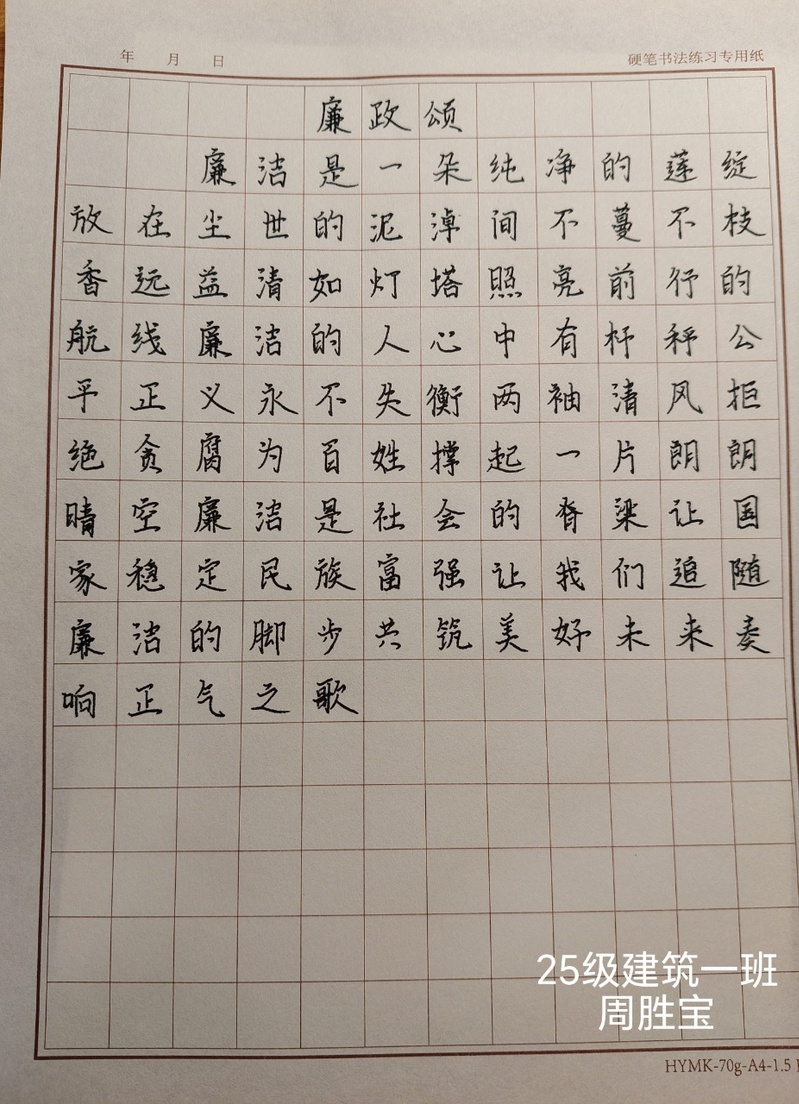 年 月 日 硬笔书法练习专用纸
廉政颂
廉洁是一朵纯净的莲绽
放在尘世的泥淖间不蔓不枝
香远益清如灯塔照亮前行的
航线廉洁的人心中有杆秤公
平正义永不失衡两袖清风拒
绝贪腐为百姓撑起一片朗朗
晴空廉洁是社会的脊梁让国
家稳定民族富强让我们追随
廉洁的脚步共筑美好未来奏
响正气之歌
25级建筑一班
周胜宝
HYMK-70g-A4-1.5